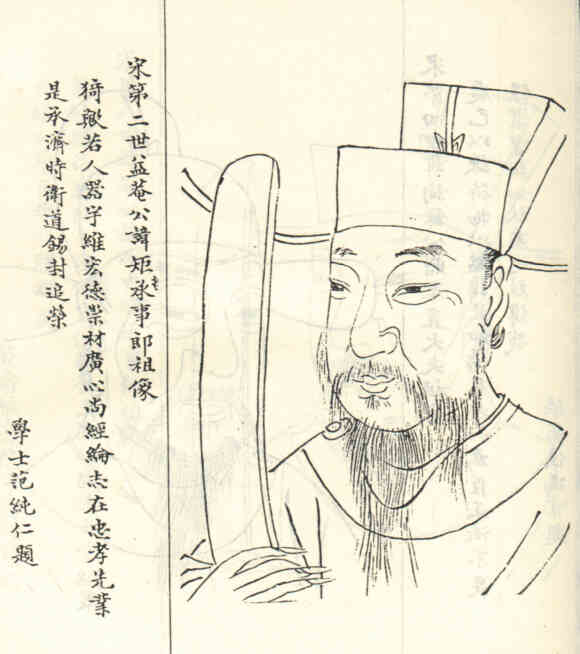 宋第二世益菴公諱矩承事郎祖像
猗歟若人器宇維宏德崇材廣心尚經綸志在忠孝先業
是承濟時衛道錫封追榮
學士范純仁題